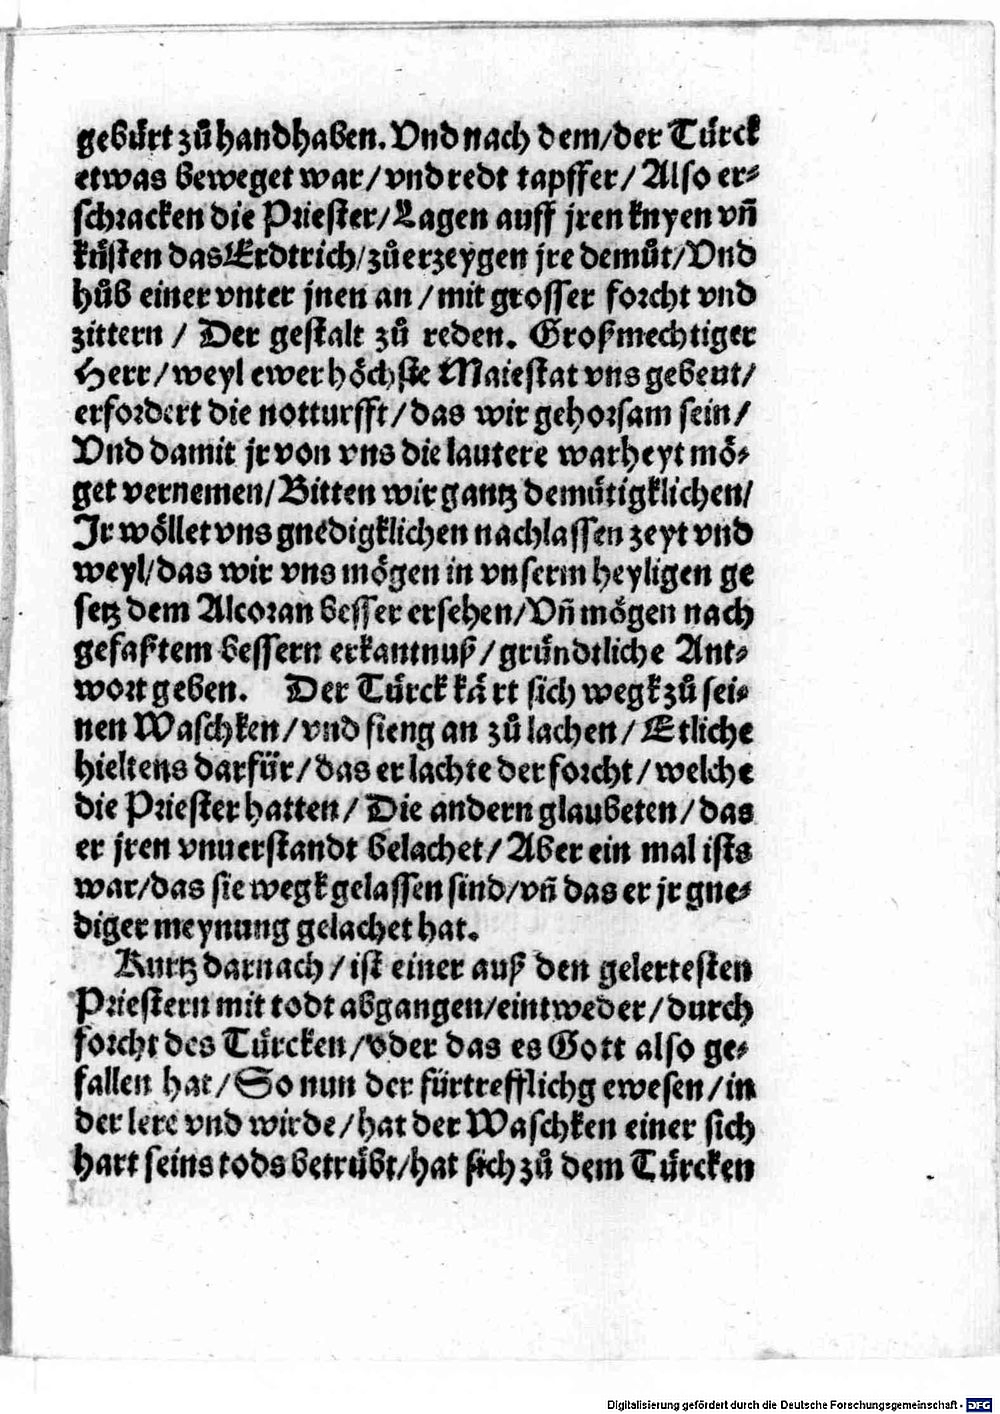 gebürt zů handhaben. Vnd nach dem/der Türck
etwas beweget war/vnd redt tapffer/Also er⸗
schracken die Priester/Lagen auff jren knyen vñ
küsten das Erdtrich/zů erzeygen jre demůt/Vnd
hůb einer vnter jnen an/mit grosser forcht vnd
zittern/Der gestalt zů reden. Großmechtiger
Herr/weyl ewer höchste Maiestat vns gebeut/
erfordert die notturfft/das wir gehorsam sein/
Vnd damit jr von vns die lautere warheyt mö⸗
get vernemen/Bitten wir gantz demütigklichen/
Jr wöllet vns gnedigklichen nachlassen zeyt vnd
weyl/das wir vns mögen in vnserm heyligen ge
setz dem Alcoran besser ersehen/Vñ mögen nach
gefaßtem bessern erkantnuß/gründtliche Ant⸗
wort geben. Der Türck kärt sich wegk zů sei⸗
nen Waschken/vnd fieng an zů lachen/Etliche
hieltens darfür/das er lachte der forcht/welche
die Priester hatten/Die andern glaubeten/das
er jren vnuerstandt belachet/Aber ein mal ists
war/das sie wegk gelassen sind/vñ das er jr gne⸗
diger meynung gelachet hat.
Kurtz darnach/ist einer auß den gelertesten
Priestern mit todt abgangen/eintweder/durch
forcht des Türcken/oder das es Gott also ge⸗
fallen hat/So nun der fürtrefflich gewesen/in
der lere vnd wirde/hat der Waschken einer sich
hart seins tods betrübt/hat sich zů dem Türcken
Digitalisierung gefördert durch die Deutsche Forschungsgemeinschaft - DFG